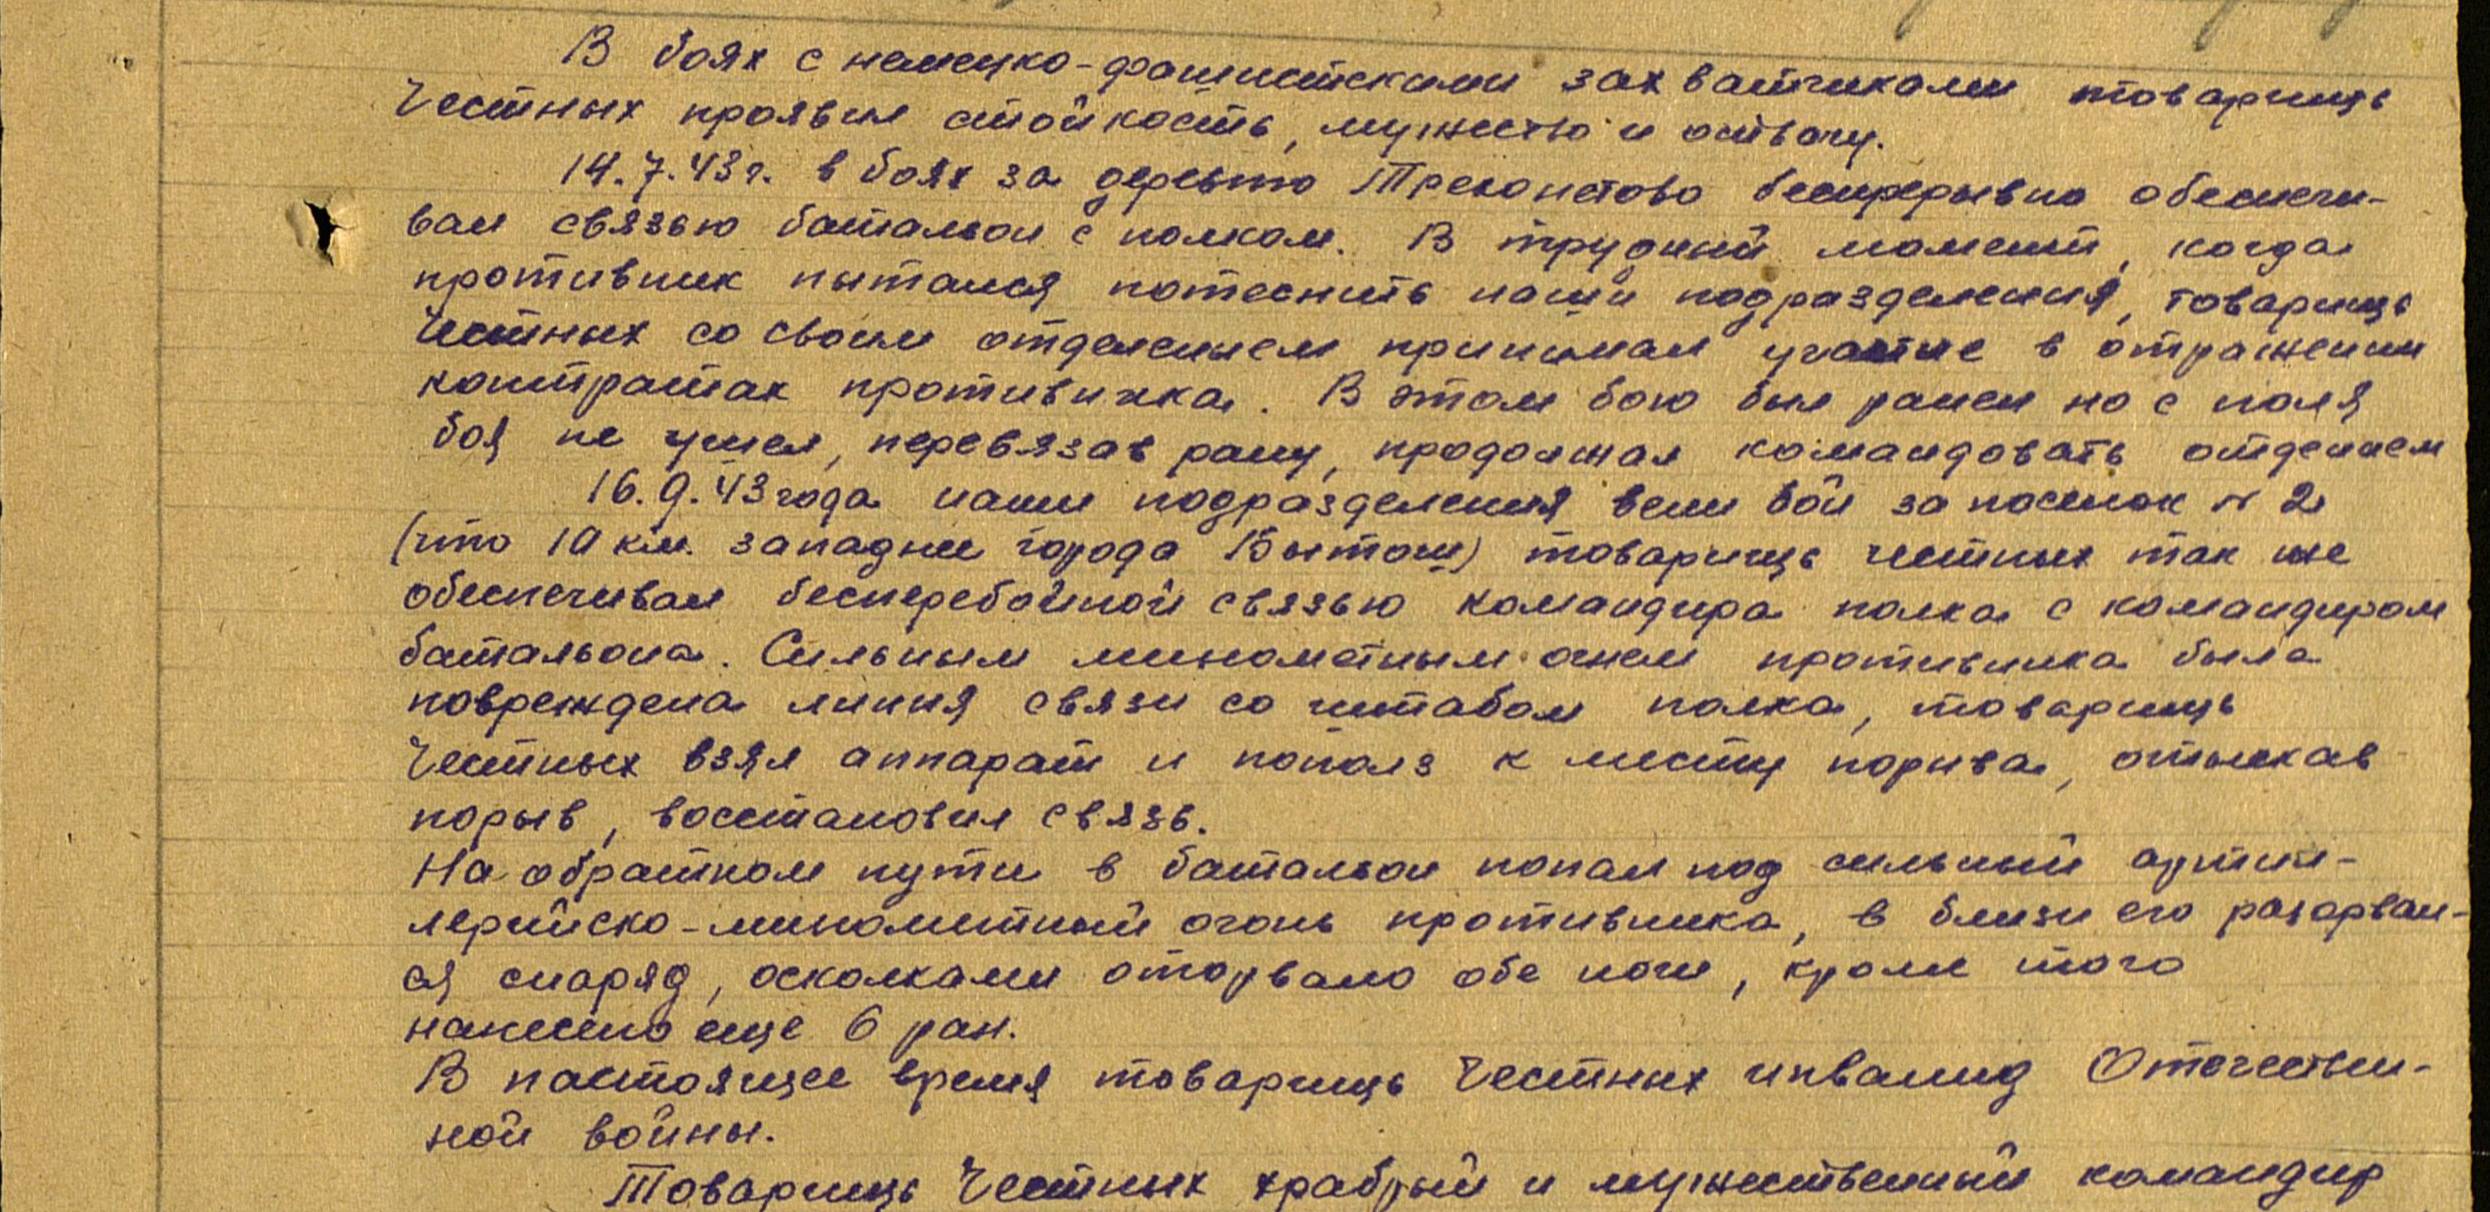 В боях с немецко-фашистскими захватчиками товарищь
Честных проявил стойкость, мужество и отвагу.
14.7.43г. в боях за деревню Трехонетово беспрерывно обеспечи-
вал связью батальон с полком. В трудный момент, когда
противник пытался потеснить наши подразделения, товарищь
Честных со своим отделением принимал участие в отражении
контратак противника. В этом бою был ранен но с поля
боя не ушел, перевязав рану, продолжал командовать отдением
16.9.43 года наши подразделения вели бой за поселок N 2
(что 10 км. западнее города Бытош) товарищь честных так же
обеспечивал бесперебойной связью командира полка с командиром
батальона. Сильным минометным огнем противника была
повреждена линия связи со штабом полка, товарищь
Честных взял аппарат и пополз к месту порыва, отыскав
порыв, восстановил связь.
На обратном пути в батальон попал под сильный артил-
лерийско-минометный огонь противника, в близи его разорвал-
ся снаряд, осколками оторвало обе ноги, кроме того
нанесено еще 6 ран.
В настоящее время товарищь Честных инвалид Отечествен-
ной войны.
Товарищь Честных храбрый и мужественный командир